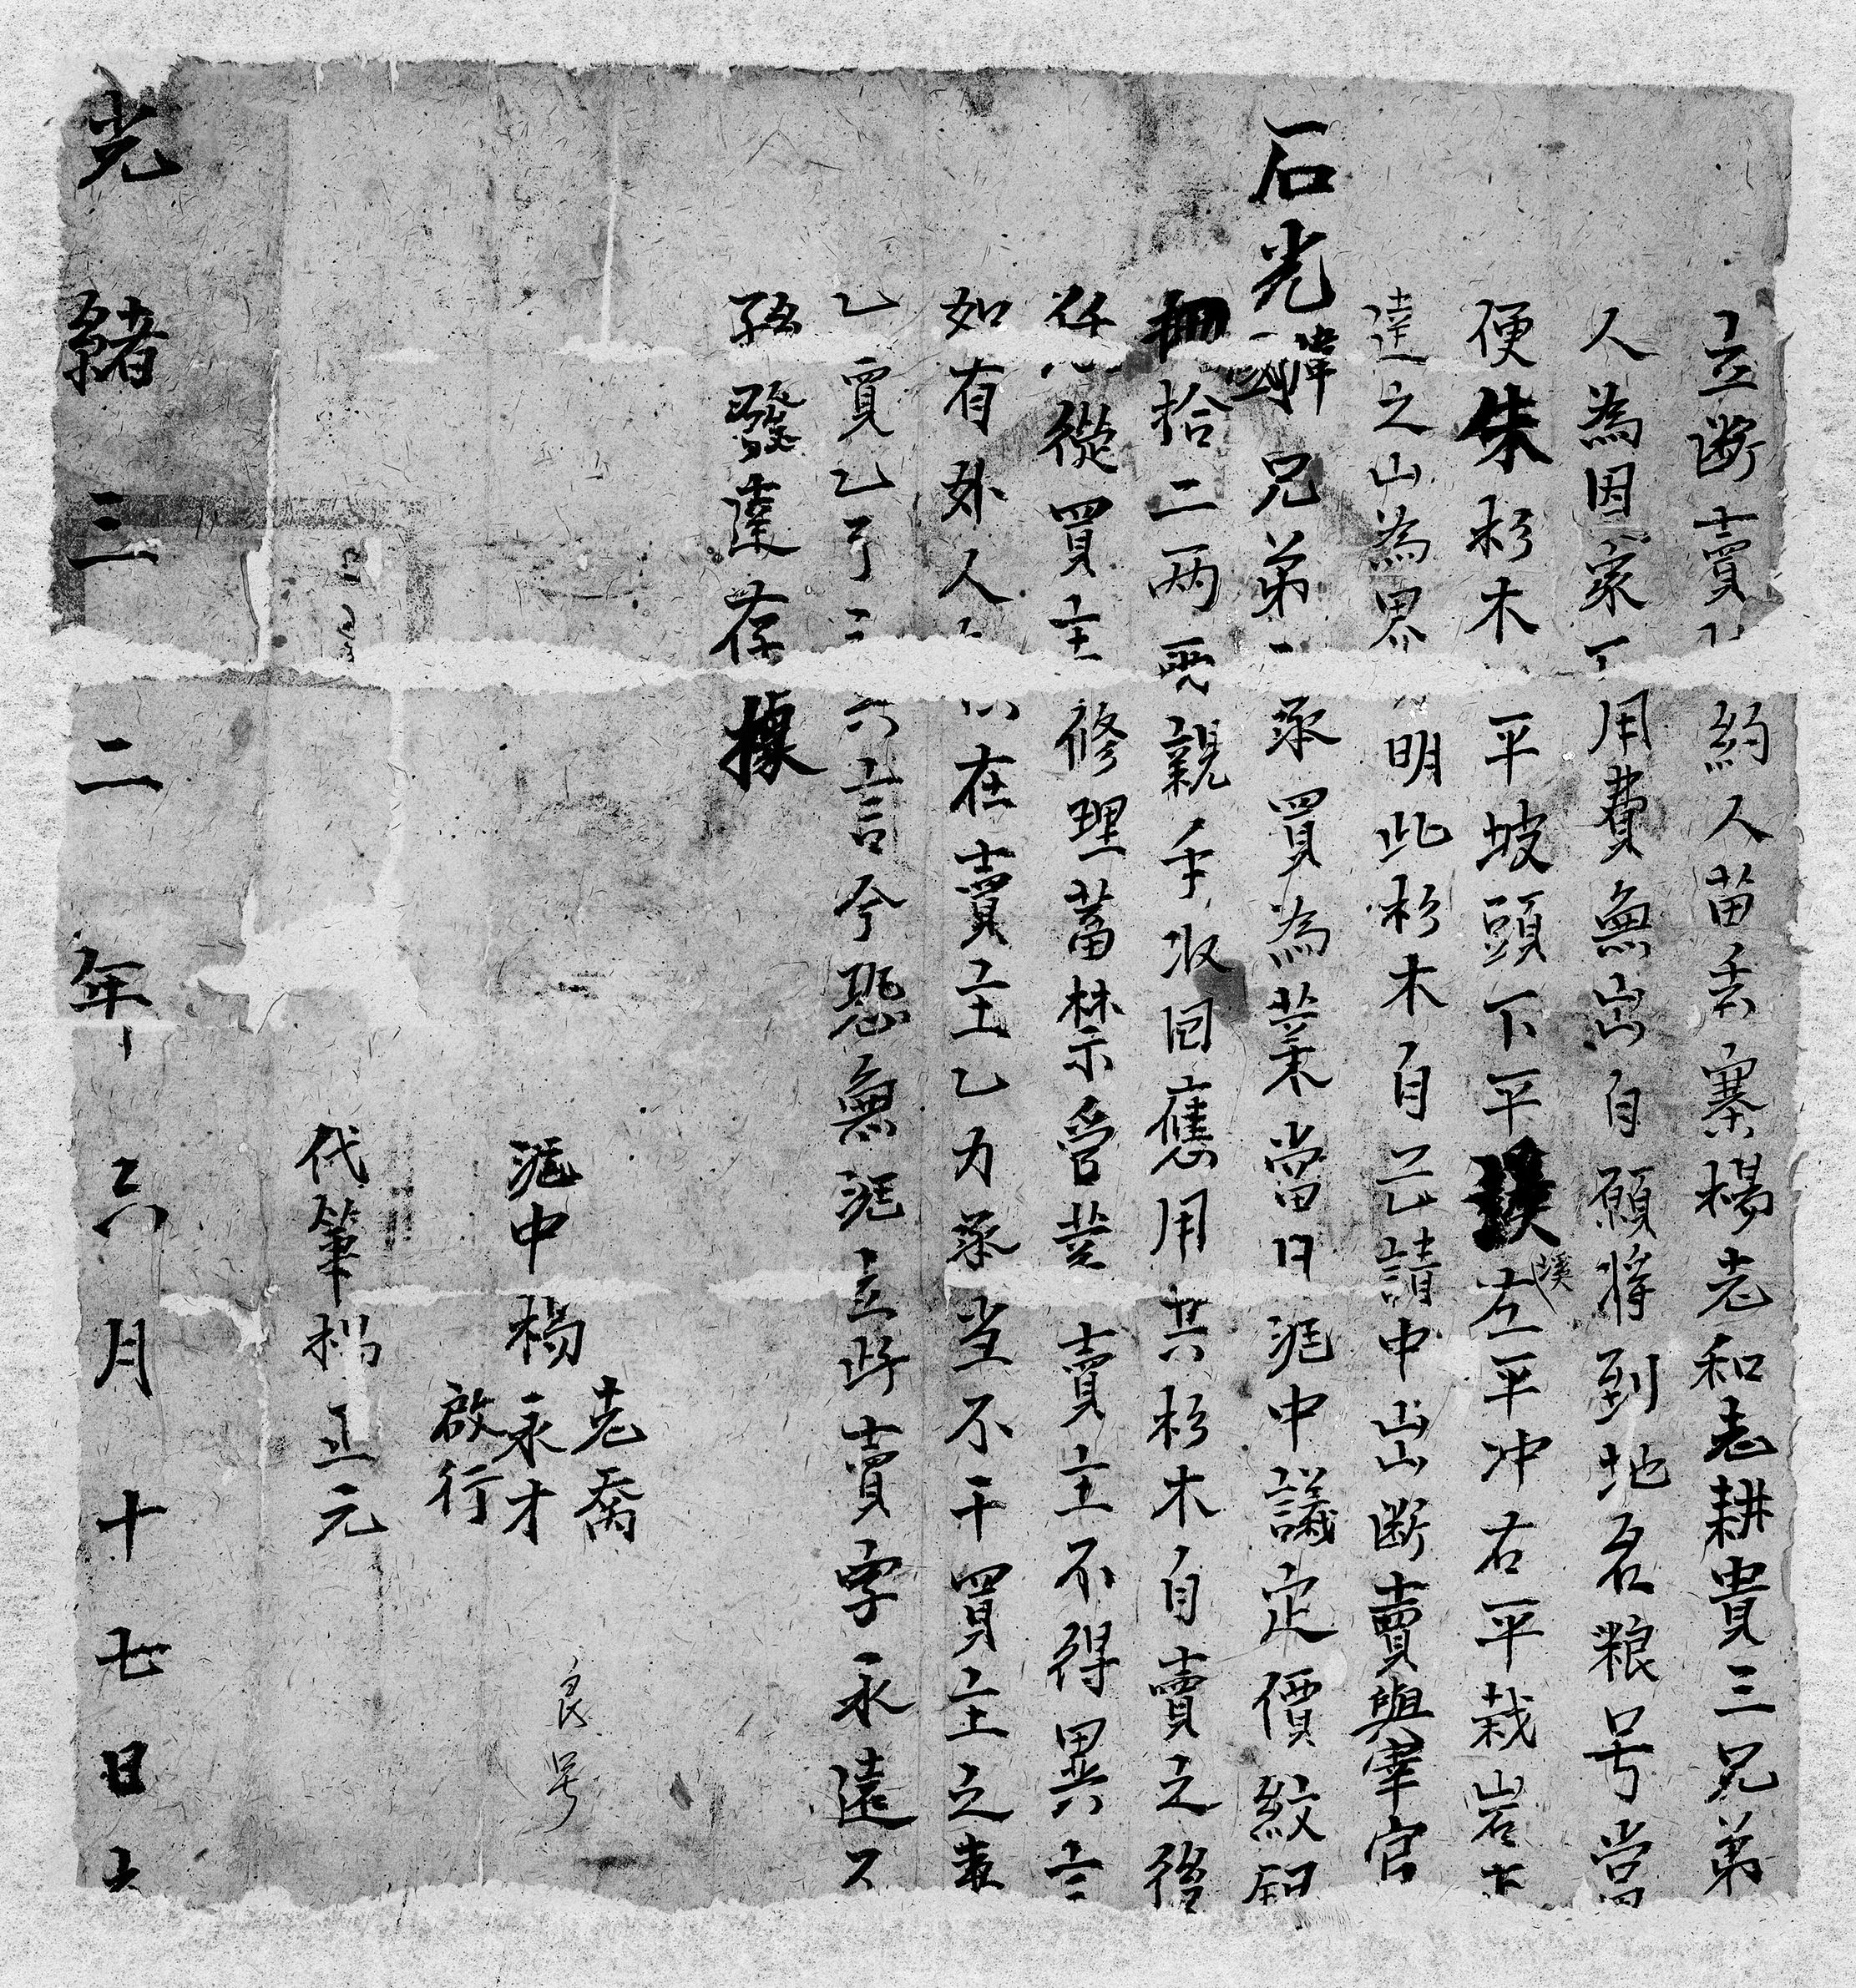 立斷賣約人苗丢寨楊老和老耕貴三兄弟
人為因家用費無出自願將到地名粮号當
便朱杉木平坡頭下平溪左平冲右平栽岩
達之山為界明此杉木自己請中出山断賣與寧官
石光輝兄弟承買為業當日凴中議定價紋銀
拾二两親手收回應用其杉木自賣之後
任從買主修理蓄禁管業賣主不得異言
如有外人在賣主乙力承当不干買主之事
乙賣乙了言今恐無凴立此賣字永遠
孫發達存據
老喬
凴中楊永才
啟行
良号
代筆楊正元
光緒三二年六月十七日立